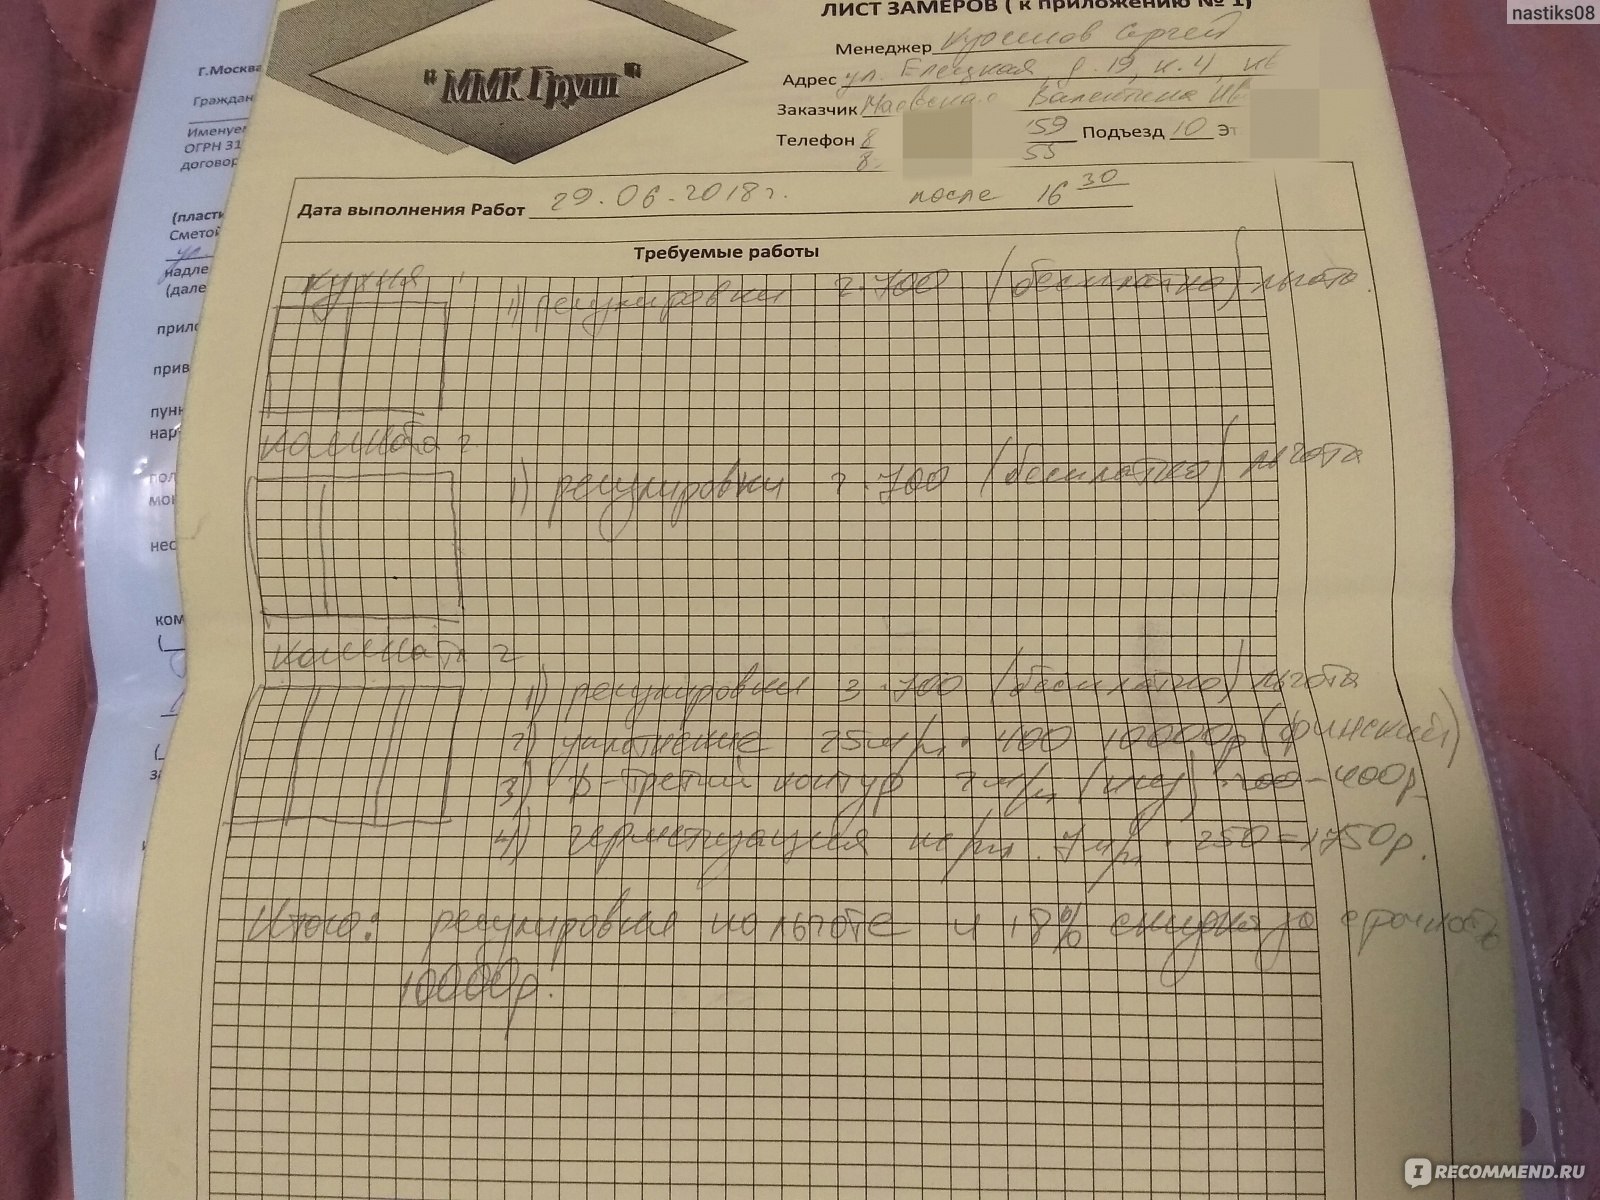 nastiks08
ЛИСТ ЗАМЕРОВ ( к приложению № 1)
"ММК Груп"
Менеджер Сергей
Адрес ул. Елецкая, д. 19, к. 4, кв
Заказчик Маевская Валентина Ив
Телефон 8 59 Подъезд 10 Эт
8. 55
г.Москва
Граждан
Именуем
ОГРН 31
договор
(пласти
Сметой
надле
(дале
прило
прив
пунк
нар
мон
нес
ком
Дата выполнения Работ 29.06.2018г. после 16 30
Требуемые работы
кухня
1) регулировки 2·700 (бесплатно) льгота.
комната 2
1) регулировки 2·700 (бесплатно) льгота
комната 2
1) регулировки 3·700 (бесплатно) льгота
2) уплотнение 25м/п · 400 10000р (финский)
3) р-третий контур 2м/п · 200-400р.
4) герметизация 7м/п · 250=1750р.
Итого: регулировки по льготе и 18% скидка за срочность
10000р.
IRECOMMEND.RU